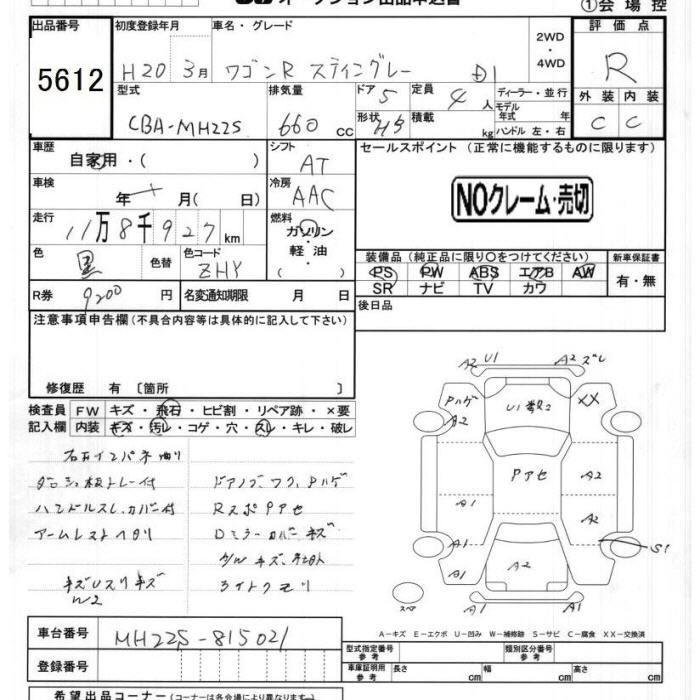 ①会場控
出品番号 初度登録年月 車名・グレード 2WD ・ 4WD 評価点
5612 H20 3月 ワゴンR スティングレー DI R
型式 排気量 ドア 5 定員 4人 ディーラー・並行 外装 内装
CBA-MH22S 660 cc 形状 HB 積載 kg モデル年式 年 ハンドル 左・右 C C
車歴 自家用・( ) シフト AT セールスポイント (正常に機能するものに限ります)
車検 年 月( 日) 冷房 AAC NOクレーム・売切
走行 11万8千927km 燃料 ガソリン・軽油・( )
色 黒 色替 色コード ZHY 装備品 (純正品に限り○をつけてください) 新車保証書
PS PW ABS エアB AW 有・無
SR ナビ TV カワ
R券 9200円 名変通知期限 月 日 後日品
注意事項申告欄(不具合内容等は具体的に記入して下さい)
修復歴 有 〔箇所 〕
検査員 FW キズ・飛石・ヒビ割・リペア跡・×要
記入欄 内装 キズ・汚レ・コゲ・穴・スレ・キレ・破レ
ダッシュ板トレー付
ハンドルスレ、カバー付 RスポPアセ
アームレストヘタリ Dミラーカバーキズ
キズUスリキズ ライトクモリ
W2
A2 U1 A2 ズレ
Pハゲ A2 XX
Pアセ A2
A1 A2
A1 A1 S1
A1 A2 A1
スペア A1 A1
A-キズ E-エクボ U-凹み W-補修跡 S-サビ C-腐食 XX-交換済
車台番号 MH22S-815021
型式指定番号 参考 類別区分番号 参考
登録番号 車庫証明用 参考 長さ cm 幅 cm 高さ cm
希望出品コーナー(コーナーは各会場により異なります)